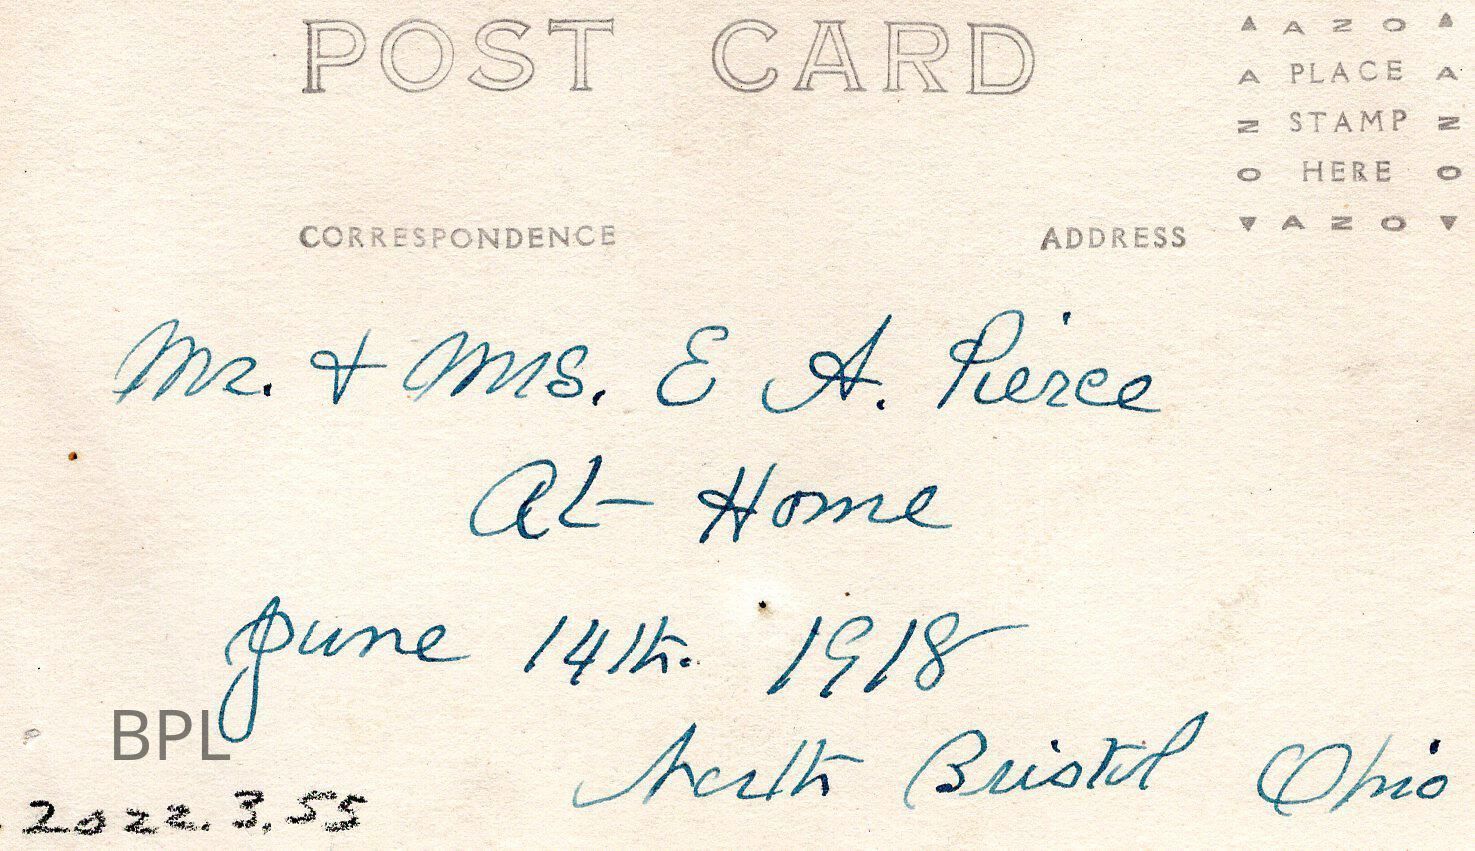 POST CARD
▲ A Z O ▲
A PLACE A
Z STAMP Z
O HERE O
▼ A Z O ▼
CORRESPONDENCE
ADDRESS
Mr. & Mrs. E A. Pierce
At Home
June 14th. 1918
North Bristol Ohio
BPL
2022.3.55